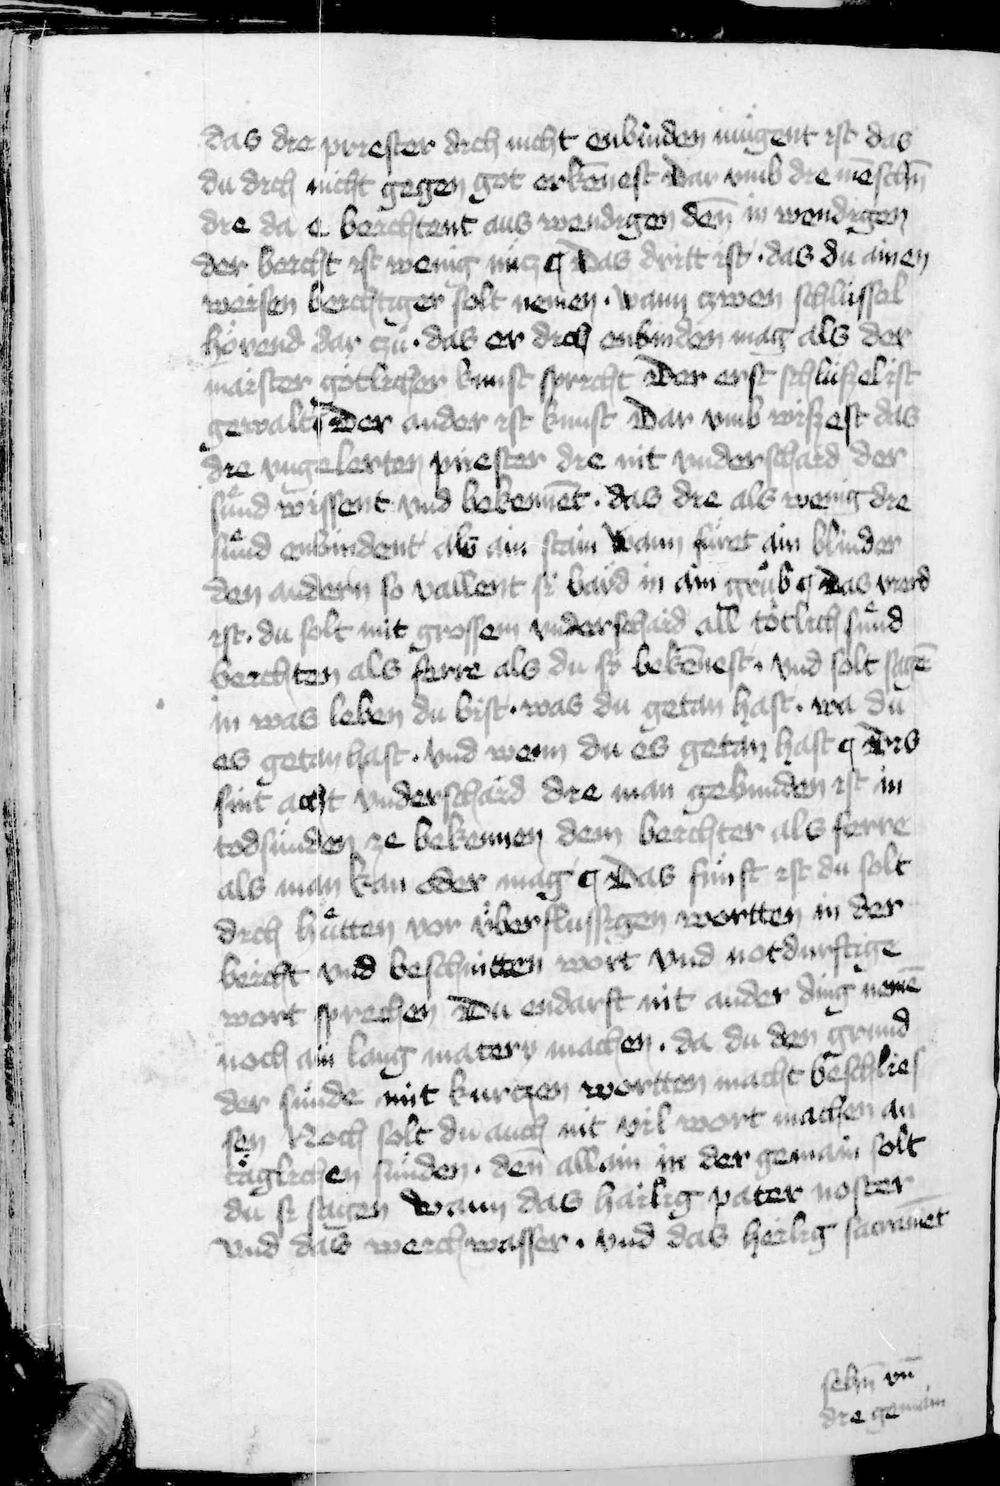 das die priester dich nicht enbinden mügent ist das
du dich nicht gegen got erkēnest Dar vmb die mēschn̄
die da e beichtent aus wendigen den̄ in wendigen
der beicht ist wenig nücz ¶ Das dritt ist · das du ainen
weisen beichtiger solt nemen · wann zwen schlüssel
hörend dar zů · das er dich enbinden mag als der
maister götlicher kunst spricht Der erst schlüßel ist
gewalt Der ander ist kunst Dar vmb wißest das
die vngelerten priester die nit vnderschaid der
sůnd wissent vnd bekennēt · das die als wenig die
sůnd enbindent als ain stain wann füret ain blinder
den andern so vallent si baid in ain grůb ¶ Das vierd
ist · du solt mit grossem vnderschaid all tötlich sůnd
beichten als ferre als du si bekēnest · vnd solt sagē
in was leben du bist · was du getan hast · wa du
es getan hast · vnd wenn du es getan hast ¶ Dis
sint acht vnderschaid die man gebunden ist in
todsünden ze bekennen dem beichter als ferre
als man kan oder mag ¶ Das fünft ist du solt
dich hůtten vor überflussigen wortten in der
beicht vnd beschnitten wort vnd notdurftige
wort sprechen Du endarft nit ander ding nemē
noch ain lang matery machen · da du den grund
der sünde mit kurtzen wortten macht beschlies
sen Noch solt du auch nit vil wort machen an
täglichen sünden · den̄ allain in der gemain solt
du si sagen Wann das hailig pater noster
vnd das weichwasser · vnd das heilig sacramēt
sebn̄ vn̄
die gemain